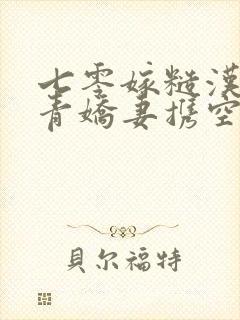 七零嫁糙漢
青嬌妻携空
貝尔福特